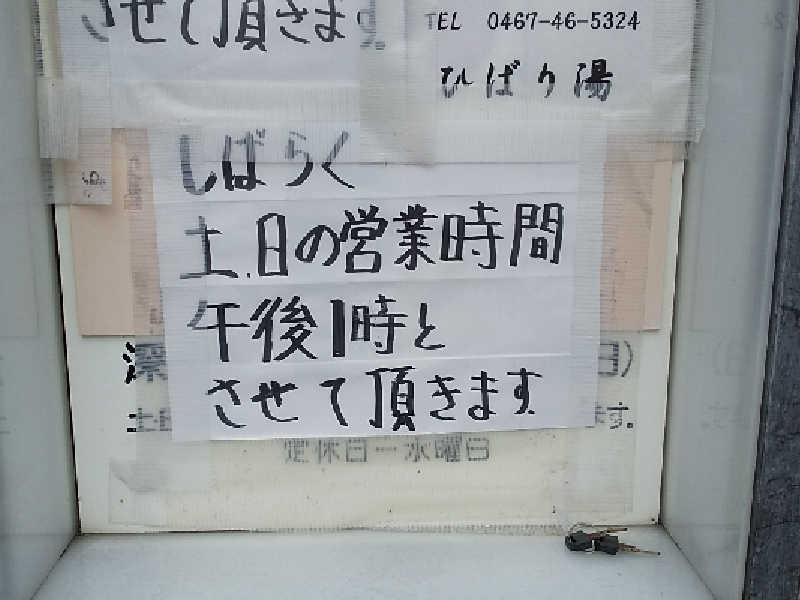 させて頂きます
TEL 0467-46-5324
ひばり湯
しばらく
土、日の営業時間
午後1時と
させて頂きます
深
日)
土日
ます。
定休日ー水曜日